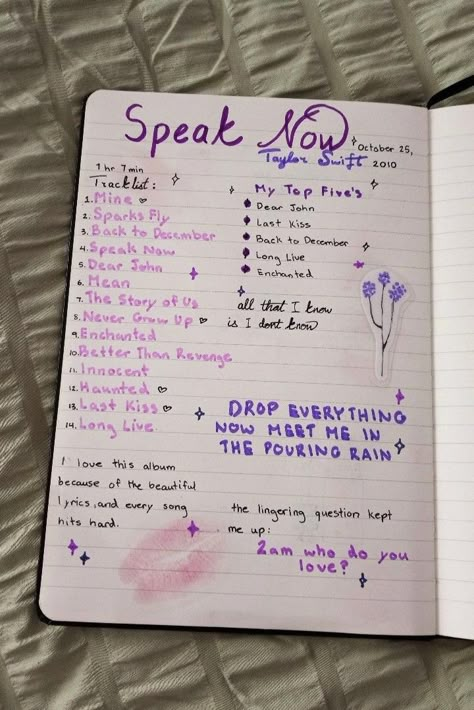 Speak Now
October 25,
Taylor Swift 2010
1 hr 7min
Tracklist:
1. Mine
2. Sparks Fly
3. Back to December
4. Speak Now
5. Dear John
6. Mean
7. The Story of Us
8. Never Grow Up
9. Enchanted
10. Better Than Revenge
11. Innocent
12. Haunted
13. Last Kiss
14. Long Live
My Top Five's
Dear John
Last Kiss
Back to December
Long Live
Enchanted
all that I know
is I dont know
DROP EVERYTHING
NOW MEET ME IN
THE POURING RAIN
I love this album
because of the beautiful
lyrics, and every song
hits hard.
the lingering question kept
me up:
2am who do you
love?